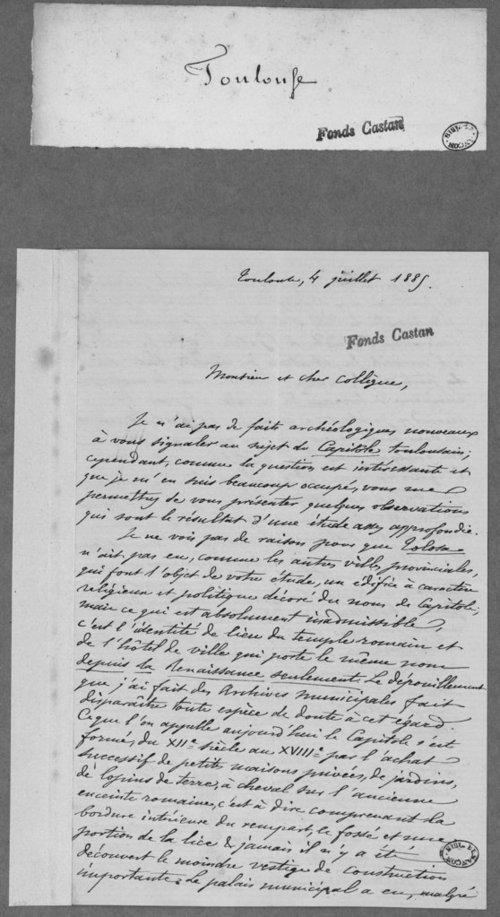 Toulouse
Fonds Castan
Toulouse, 4 juillet 1885.
Fonds Castan
Monsieur et cher Collègue,
Je n'ai pas de faits archéologiques nouveaux
à vous signaler au sujet du Capitole toulousain;
cependant, comme la question est intéressante et
que je m'en suis beaucoup occupé, vous me
permettrez de vous présenter quelques observations
qui sont le résultat d'une étude assez approfondie.
Je ne vois pas de raisons pour que Tolosa
n'ait pas eu, comme les autres villes provinciales,
qui font l'objet de votre étude, un édifice à caractère
religieux et politique décoré du nom de Capitole;
mais ce qui est absolument inadmissible,
c'est l'identité de lieu du temple romain et
de l'hôtel de ville qui porte le même nom
depuis la Renaissance seulement. Le dépouillement
que j'ai fait des Archives municipales fait
disparaître toute espèce de doute à cet égard.
Ce que l'on appelle aujourd'hui le Capitole s'est
formé, du XIIe siècle au XVIIIe par l'achat
successif de petites maisons privées, de jardins,
de lopins de terre, à cheval sur l'ancienne
enceinte romaine, c'est à dire comprenant la
bordure intérieure du rempart, le fossé et une
portion de la lice & jamais il n'y a été
découvert le moindre vestige de construction
importante. Le palais municipal a eu, malgré